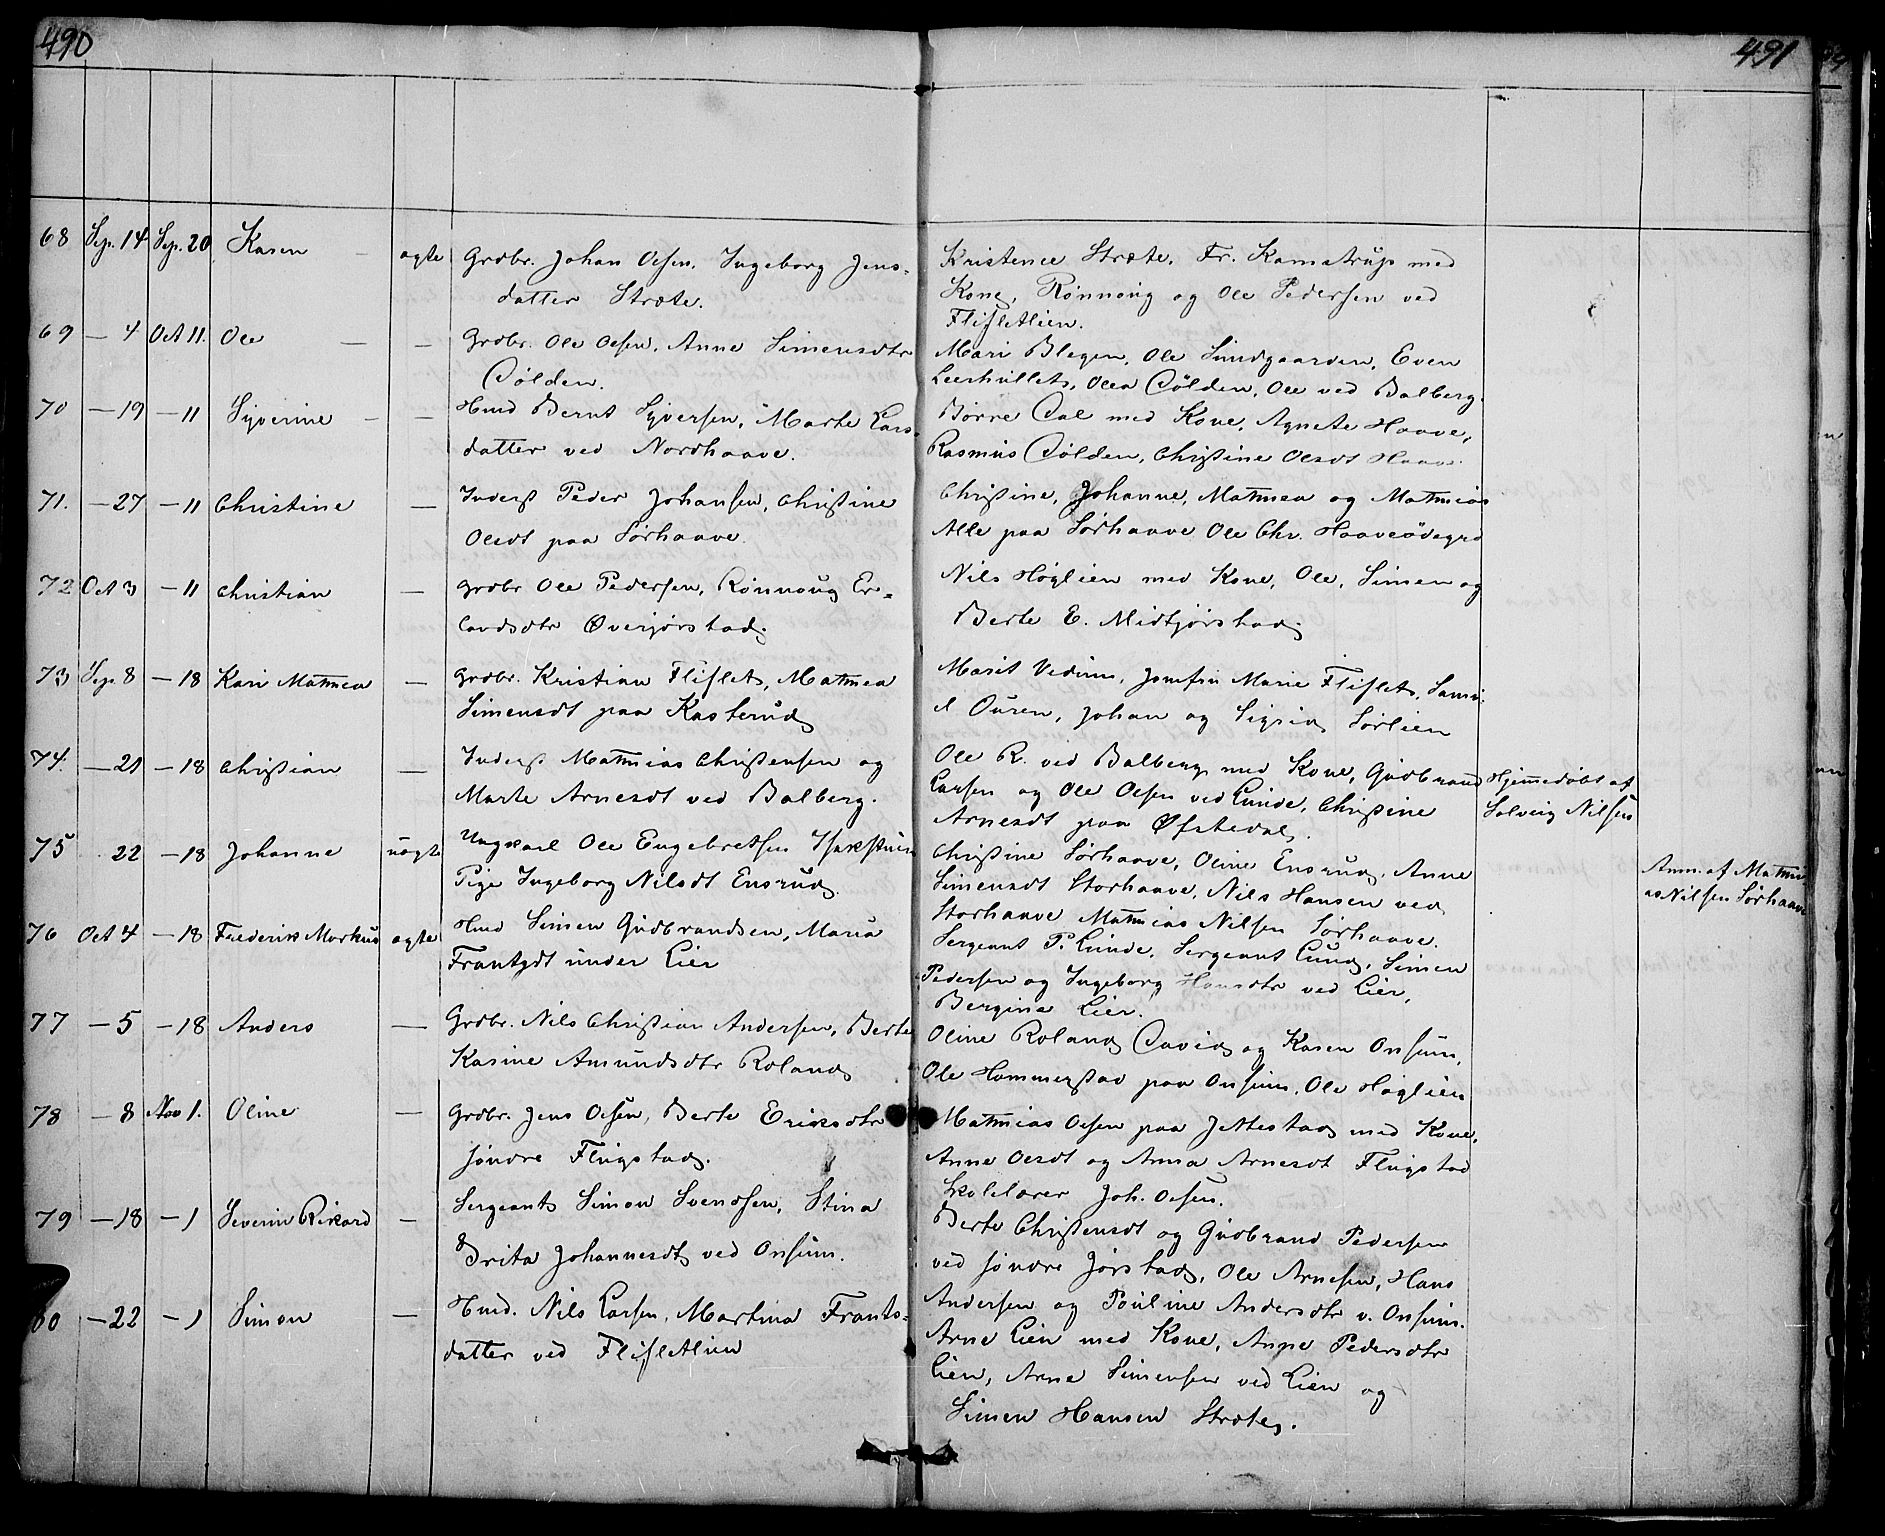 490
491
68 Sep. 14 Sep. 20 Karen – ægte Grdbr. Johan Olsen, Ingeborg Jens-
datter Stræte.
Kristence Stræte, Fr. Kamstrup med
Kone, Rønnoug og Ole Pedersen ved
Flifletlien.
69 – 4 Oct 11. Ole – – Grdbr. Ole Olsen, Anne Simensdtr
Dølden.
Mari Blegen, Ole Sundgaarden, Even
Leerhullet, Olea Dølden, Ole ved Balberg.
70 – 19 – 11 Syverine – – Hmd Bernt Syversen, Marte Lars-
datter ved Nordhaave.
Børre Dal med Kone, Agnete Haave,
Rasmus Dølden, Christine Olsdt Haave.
71. – 27 – 11 Christine – Inderst Peder Johansen, Christine
Olsdt paa Sørhaave.
Christine, Johanne, Mathea og Mathias
Alle paa Sørhaave Ole Chr. Haaveødegrd
72 Oct 3 – 11 Christian – Grdbr Ole Pedersen, Rønnoug Er-
landsdtr Øverjørstad.
Nils Høglien med Kone, Ole, Simen og
Berte E. Midtjørstad
73 Sep. 8 – 18 Kari Mathea – Grdbr. Kristian Fliflet, Mathea
Simensdt paa Kasterud
Marit Vedum, Josefin Marie Fliflet, Samu-
el Ouren, Johan og Sigrid Sørlien
74. – 21 – 18 Christian – Inderst Mathias Christensen og
Marte Arnesdt ved Balberg.
Ole R. ved Balberg med Kone, Gudbrand
Larsen og Ole Olsen ved Lunde, Christine
Arnesdt paa Øfstedal.
Hjemmedøbt af
Solveig Nilsen
75 22 – 18 Johanne uægte Ungkarl Ole Engebretsen
Pige Ingeborg Nilsdt Ensrud.
Christine Sørhaave, Oline Ensrud, Anne
Simensdt Storhaave, Nils Hansen ved
Storhaave Mathias Nilsen Sørhaave.
Anm. af Mathi
as Nilsen Sørhaave
76 Oct 4 – 18 Frederik Markus ægte Hmd Simen Gudbrandsen, Maria
Frantzdt under Lier
Sergeant P. Lunde, Sergeant Lund, Simen
Pedersen og Ingeborg Hansdtr ved Lier,
Bergine Lier.
77 – 5 – 18 Anders – Grdbr. Nils Christian Andersen, Berte
Karine Amundsdtr Roland
Oline Roland David og Karen Onsum,
Ole Hammerstad paa Onsum, Ole Høglien
78 – 8 Nov 1. Oline – Grdbr. Jens Olsen, Berte Eriksdtr
søndre Flugstad.
Mathias Olsen paa Jettestad med Kone,
Anne Olsdt og Anna Arnesdt Flugstad
Skolelærer Joh. Olsen.
79 – 18 – 1 Severin Rikard – Sergeant Simon Svendsen, Stina
Brita Johannesdt ved Onsum.
Berte Christensdt og Gudbrand Pedersen
ved søndre Jørstad, Ole Arnesen, Hans
Andersen og Pouline Andersdtr v. Onsum.
80 – 22 – 1 Simon – Hmd. Nils Larsen, Martina Frants-
datter ved Flifletlien
Arne Lien med Kone, Anne Pedersdtr
Lien, Arne Simensen ved Lien og
Simen Hansen Stræte.